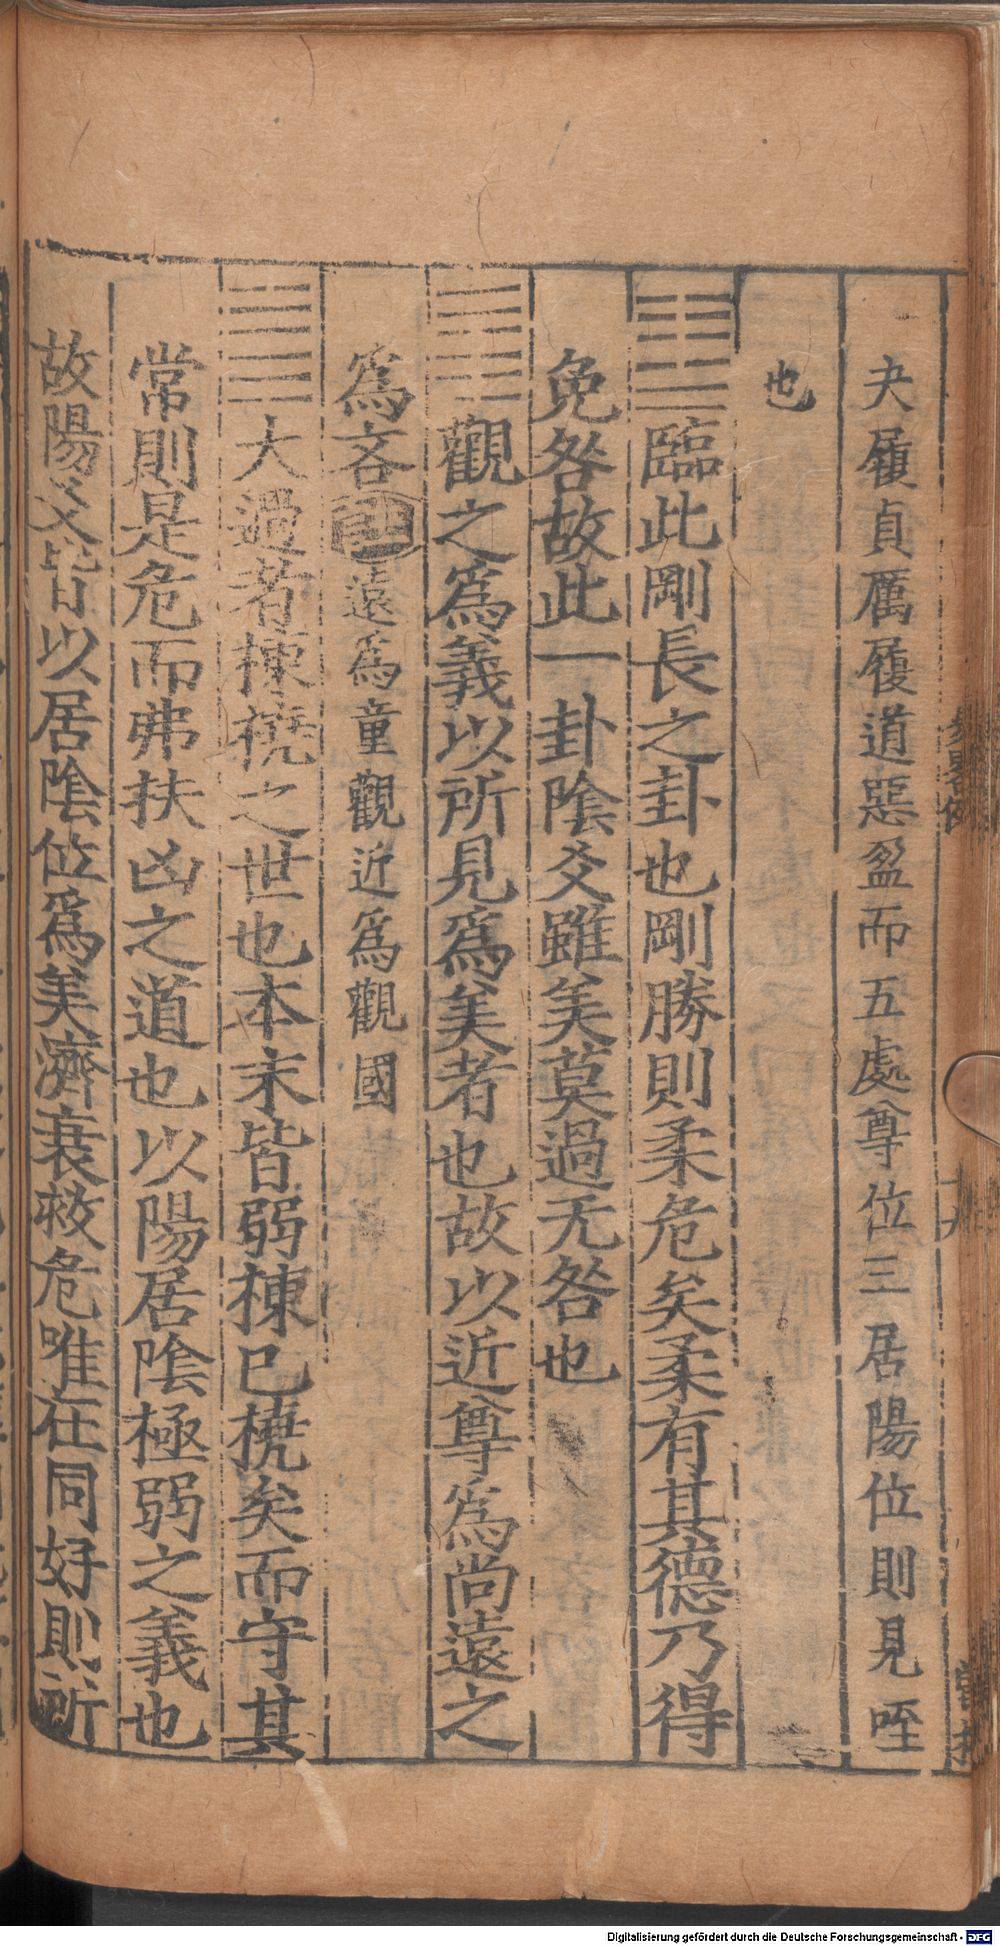 夬履貞厲履道惡盈而五處尊位三居陽位則見咥
也
䷒臨此剛長之卦也剛勝則柔危矣柔有其德乃得
免咎故此一卦陰爻雖美莫過无咎也
䷓觀之爲義以所見爲美者也故以近尊爲尚遠之
爲吝 遠爲童觀近爲觀國
䷛大過者棟橈之世也本末皆弱棟已橈矣而守其
常則是危而弗扶凶之道也以陽居陰極弱之義也
故陽爻皆以居陰位爲美濟衰救危唯在同好則所
Digitalisierung gefördert durch die Deutsche Forschungsgemeinschaft - DFG